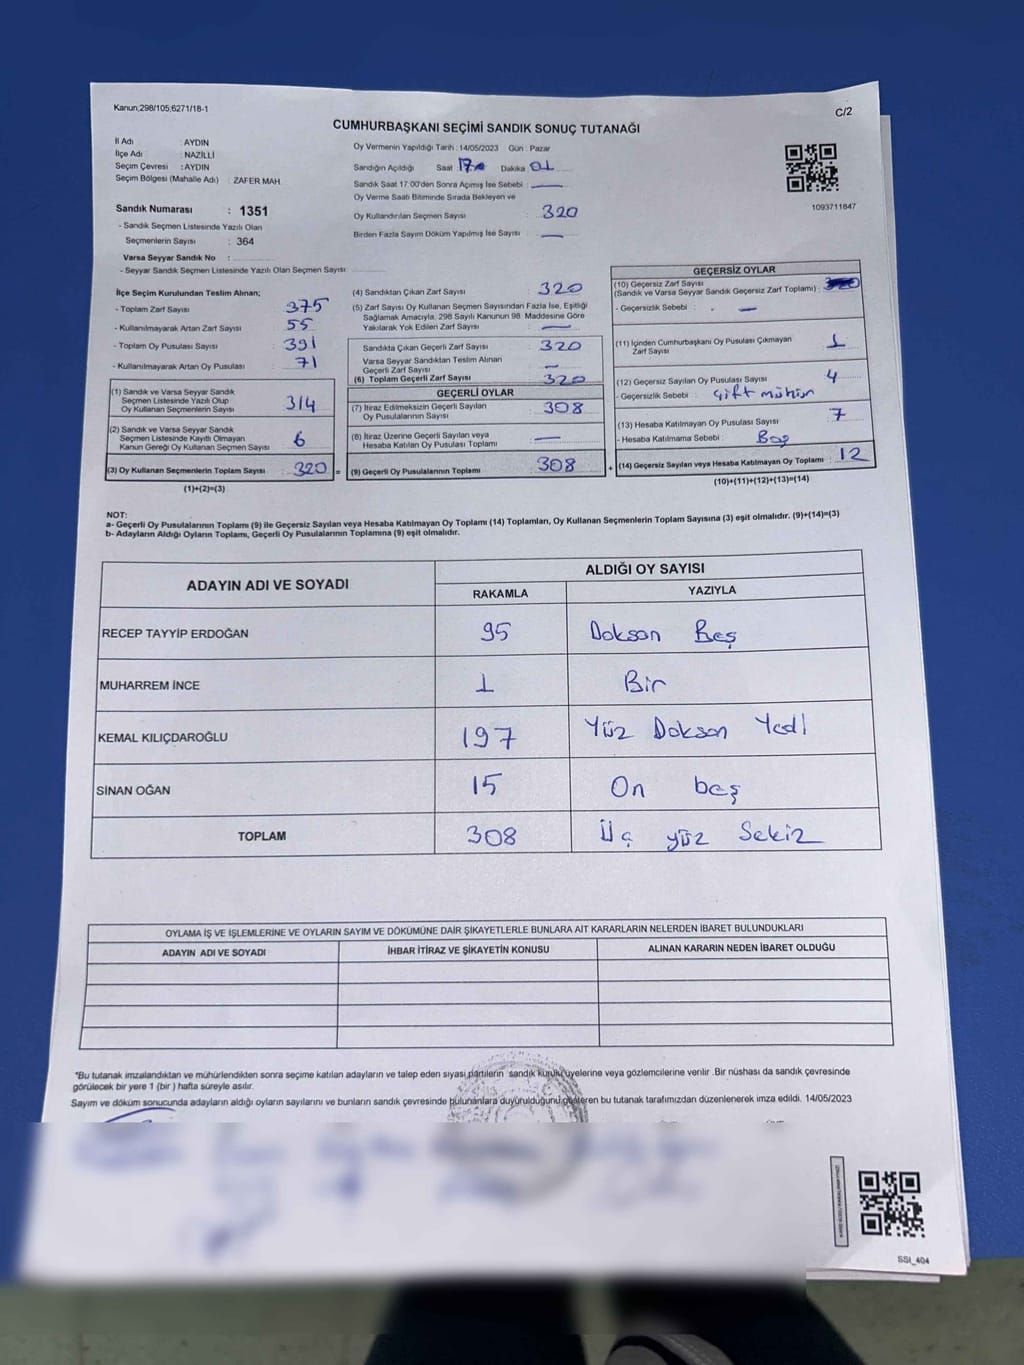 Kanun;298/105;6271/18-1
C/2
CUMHURBAŞKANI SEÇİMİ SANDIK SONUÇ TUTANAĞI
İl Adı : AYDIN
İlçe Adı : NAZİLLİ
Seçim Çevresi : AYDIN
Seçim Bölgesi (Mahalle Adı) : ZAFER MAH
Sandık Numarası : 1351
- Sandık Seçmen Listesinde Yazılı Olan
Seçmenlerin Sayısı : 364
Varsa Seyyar Sandık No :
- Seyyar Sandık Seçmen Listesinde Yazılı Olan Seçmen Sayısı:
Oy Vermenin Yapıldığı Tarih : 14/05/2023 Gün : Pazar
Sandığın Açıldığı Saat 17 Dakika 01
Sandık Saat 17:00'den Sonra Açımış İse Sebebi : —
Oy Verme Saati Bitiminde Sırada Bekleyen ve
Oy Kullandırılan Seçmen Sayısı : 320
Birden Fazla Sayım Döküm Yapılmış İse Sayısı : —
1093711847
İlçe Seçim Kurulundan Teslim Alınan;
- Toplam Zarf Sayısı : 375
- Kullanılmayarak Artan Zarf Sayısı : 55
- Toplam Oy Pusulası Sayısı : 391
- Kullanılmayarak Artan Oy Pusulası : 71
(1) Sandık ve Varsa Seyyar Sandık
Seçmen Listesinde Yazılı Olup
Oy Kullanan Seçmenlerin Sayısı : 314
(2) Sandık ve Varsa Seyyar Sandık
Seçmen Listesinde Kayıtlı Olmayan
Kanun Gereği Oy Kullanan Seçmen Sayısı : 6
(3) Oy Kullanan Seçmenlerin Toplam Sayısı : 320 =
(1)+(2)=(3)
(4) Sandıktan Çıkan Zarf Sayısı : 320
(5) Zarf Sayısı Oy Kullanan Seçmen Sayısından Fazla İse, Eşitliği
Sağlamak Amacıyla, 298 Sayılı Kanunun 98. Maddesine Göre
Yakılarak Yok Edilen Zarf Sayısı : —
Sandıkta Çıkan Geçerli Zarf Sayısı : 320
Varsa Seyyar Sandıktan Teslim Alınan
Geçerli Zarf Sayısı : —
(6) Toplam Geçerli Zarf Sayısı : 320
GEÇERLİ OYLAR
(7) İtiraz Edilmeksizin Geçerli Sayılan
Oy Pusulalarının Sayısı : 308
(8) İtiraz Üzerine Geçerli Sayılan veya
Hesaba Katılan Oy Pusulası Toplamı : —
(9) Geçerli Oy Pusulalarının Toplamı : 308 +
GEÇERSİZ OYLAR
(10) Geçersiz Zarf Sayısı
(Sandık ve Varsa Seyyar Sandık Geçersiz Zarf Toplamı) :
- Geçersizlik Sebebi : —
(11) İçinden Cumhurbaşkanı Oy Pusulası Çıkmayan
Zarf Sayısı : 1
(12) Geçersiz Sayılan Oy Pusulası Sayısı : 4
- Geçersizlik Sebebi : Çift mühür
(13) Hesaba Katılmayan Oy Pusulası Sayısı : 7
- Hesaba Katılmama Sebebi : Boş
(14) Geçersiz Sayılan veya Hesaba Katılmayan Oy Toplamı : 12
(10)+(11)+(12)+(13)=(14)
NOT:
a- Geçerli Oy Pusulalarının Toplamı (9) ile Geçersiz Sayılan veya Hesaba Katılmayan Oy Toplamı (14) Toplamları, Oy Kullanan Seçmenlerin Toplam Sayısına (3) eşit olmalıdır. (9)+(14)=(3)
b- Adayların Aldığı Oyların Toplamı, Geçerli Oy Pusulalarının Toplamına (9) eşit olmalıdır.
ADAYIN ADI VE SOYADI
ALDIĞI OY SAYISI
RAKAMLA YAZIYLA
RECEP TAYYİP ERDOĞAN 95 Doksan Beş
MUHARREM İNCE 1 Bir
KEMAL KILIÇDAROĞLU 197 Yüz Doksan Yedi
SİNAN OĞAN 15 On beş
TOPLAM 308 Üç yüz Sekiz
OYLAMA İŞ VE İŞLEMLERİNE VE OYLARIN SAYIM VE DÖKÜMÜNE DAİR ŞİKAYETLERLE BUNLARA AİT KARARLARIN NELERDEN İBARET BULUNDUKLARI
ADAYIN ADI VE SOYADI İHBAR İTİRAZ VE ŞİKAYETİN KONUSU ALINAN KARARIN NEDEN İBARET OLDUĞU
*Bu tutanak imzalandıktan ve mühürlendikten sonra seçime katılan adayların ve talep eden siyasi partilerin sandık kurulu üyelerine veya gözlemcilerine verilir .Bir nüshası da sandık çevresinde
görülecek bir yere 1 (bir ) hafta süreyle asılır.
Sayım ve döküm sonucunda adayların aldığı oyların sayılarını ve bunların sandık çevresinde bulunanlara duyurulduğunu gösteren bu tutanak tarafımızdan düzenlenerek imza edildi. 14/05/2023
SSI_404